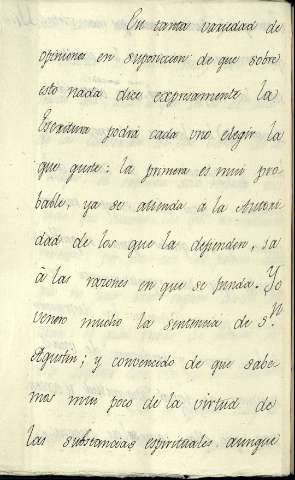 En tanta variedad de
opiniones en suposicion de que sobre
esto nada dice expresamente la
Escritura podrá cada uno elegir la
que guste: la primera es mui pro-
bable, ya se atienda a la Autori
dad de los que la defienden, ia
à las razones en que se funda. Yo
venero mucho la sentencia de Sn
Agustin; y convencido de que sabe-
mos mui poco de la virtud de
las substancias espirituales aunque